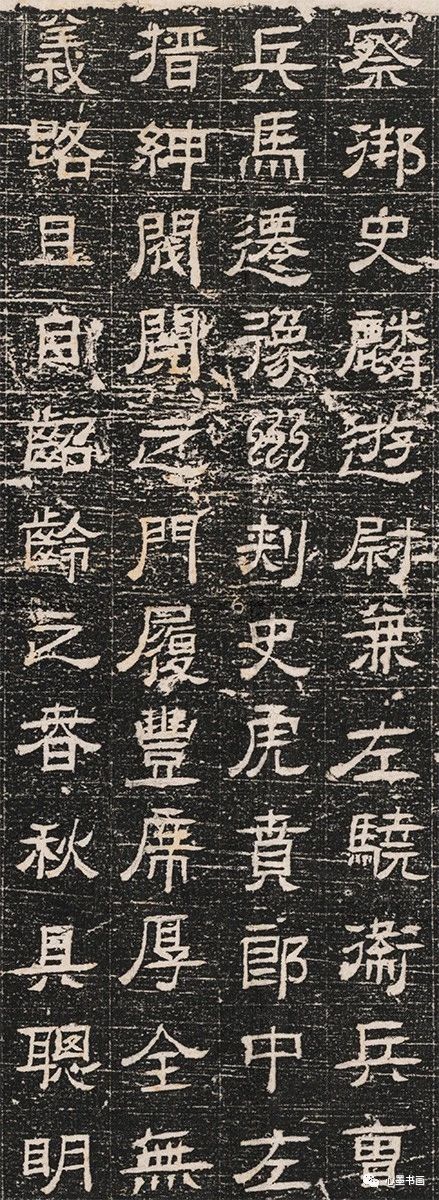 察御史麟遊尉兼左驍衛兵曹
兵馬遷豫州刾史虎賁郎中左
搢紳閥閱之門履豐席厚全無
義路且自齠齡之春秋具聰明
心墨书画